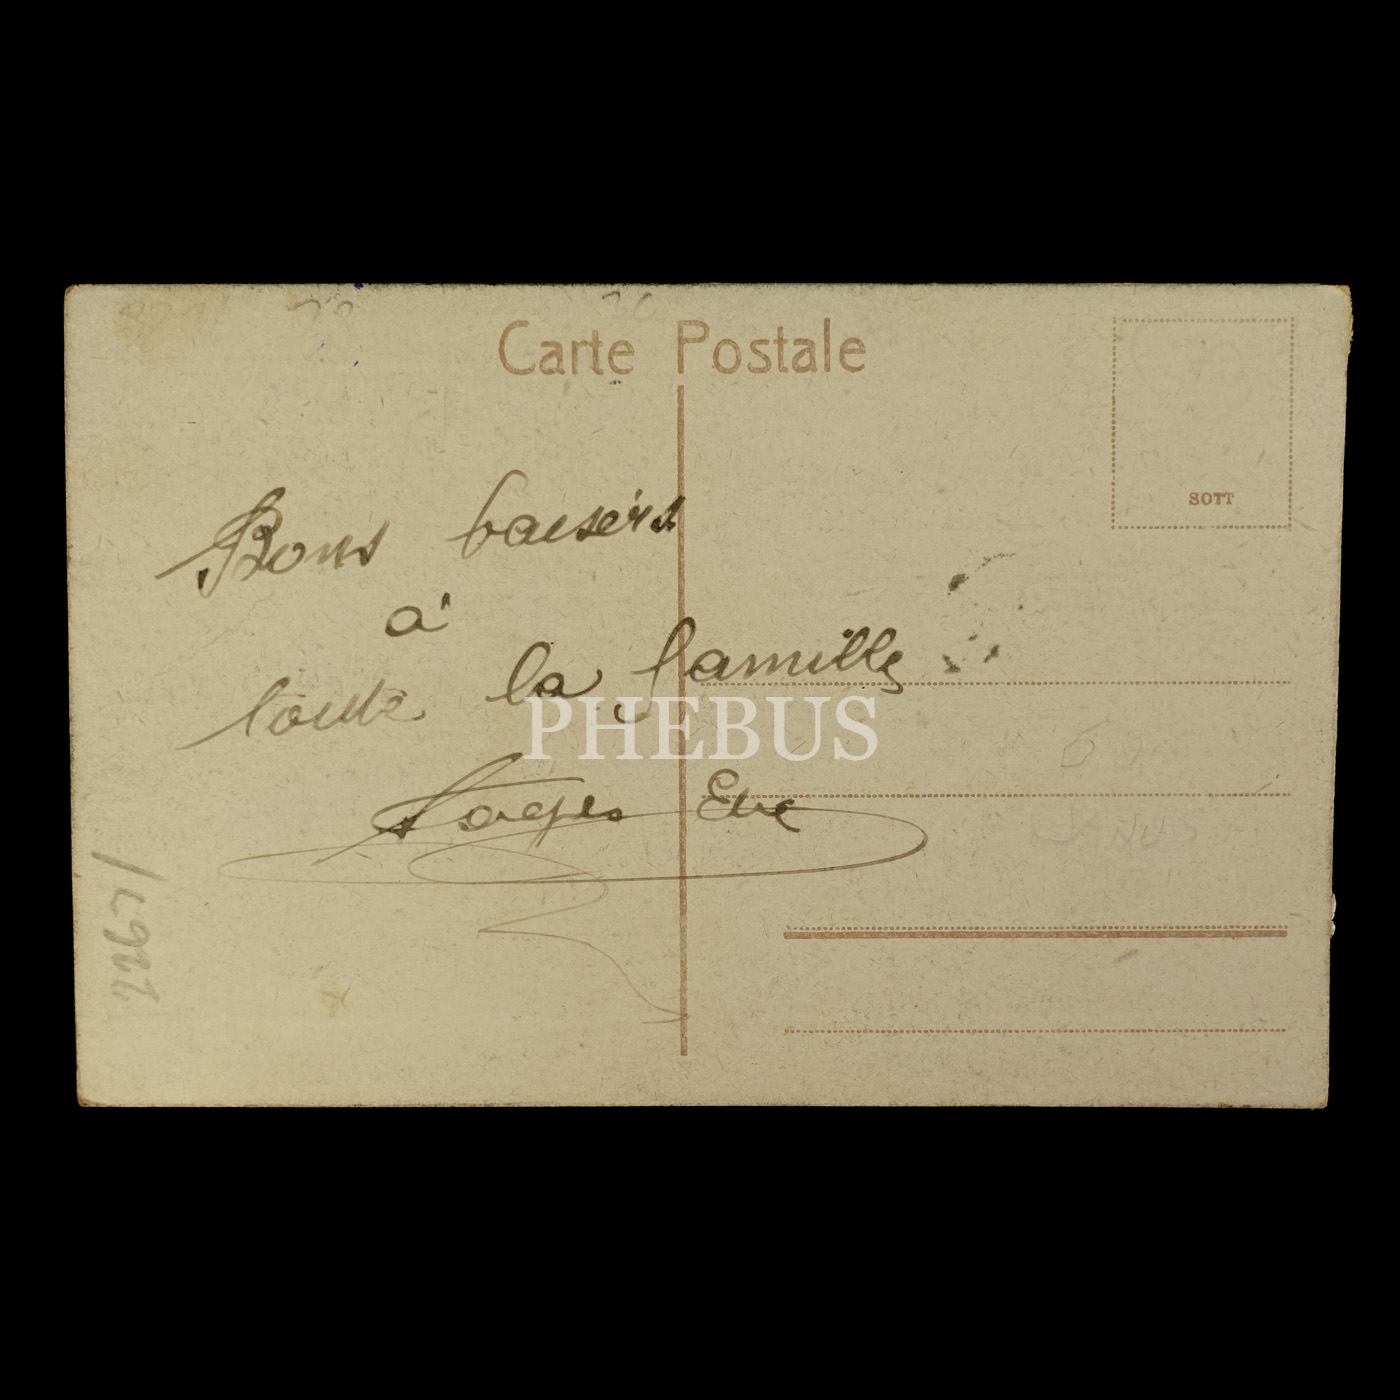 Carte Postale
SOTT
Bons baisers
à
toute la famille
PHEBUS